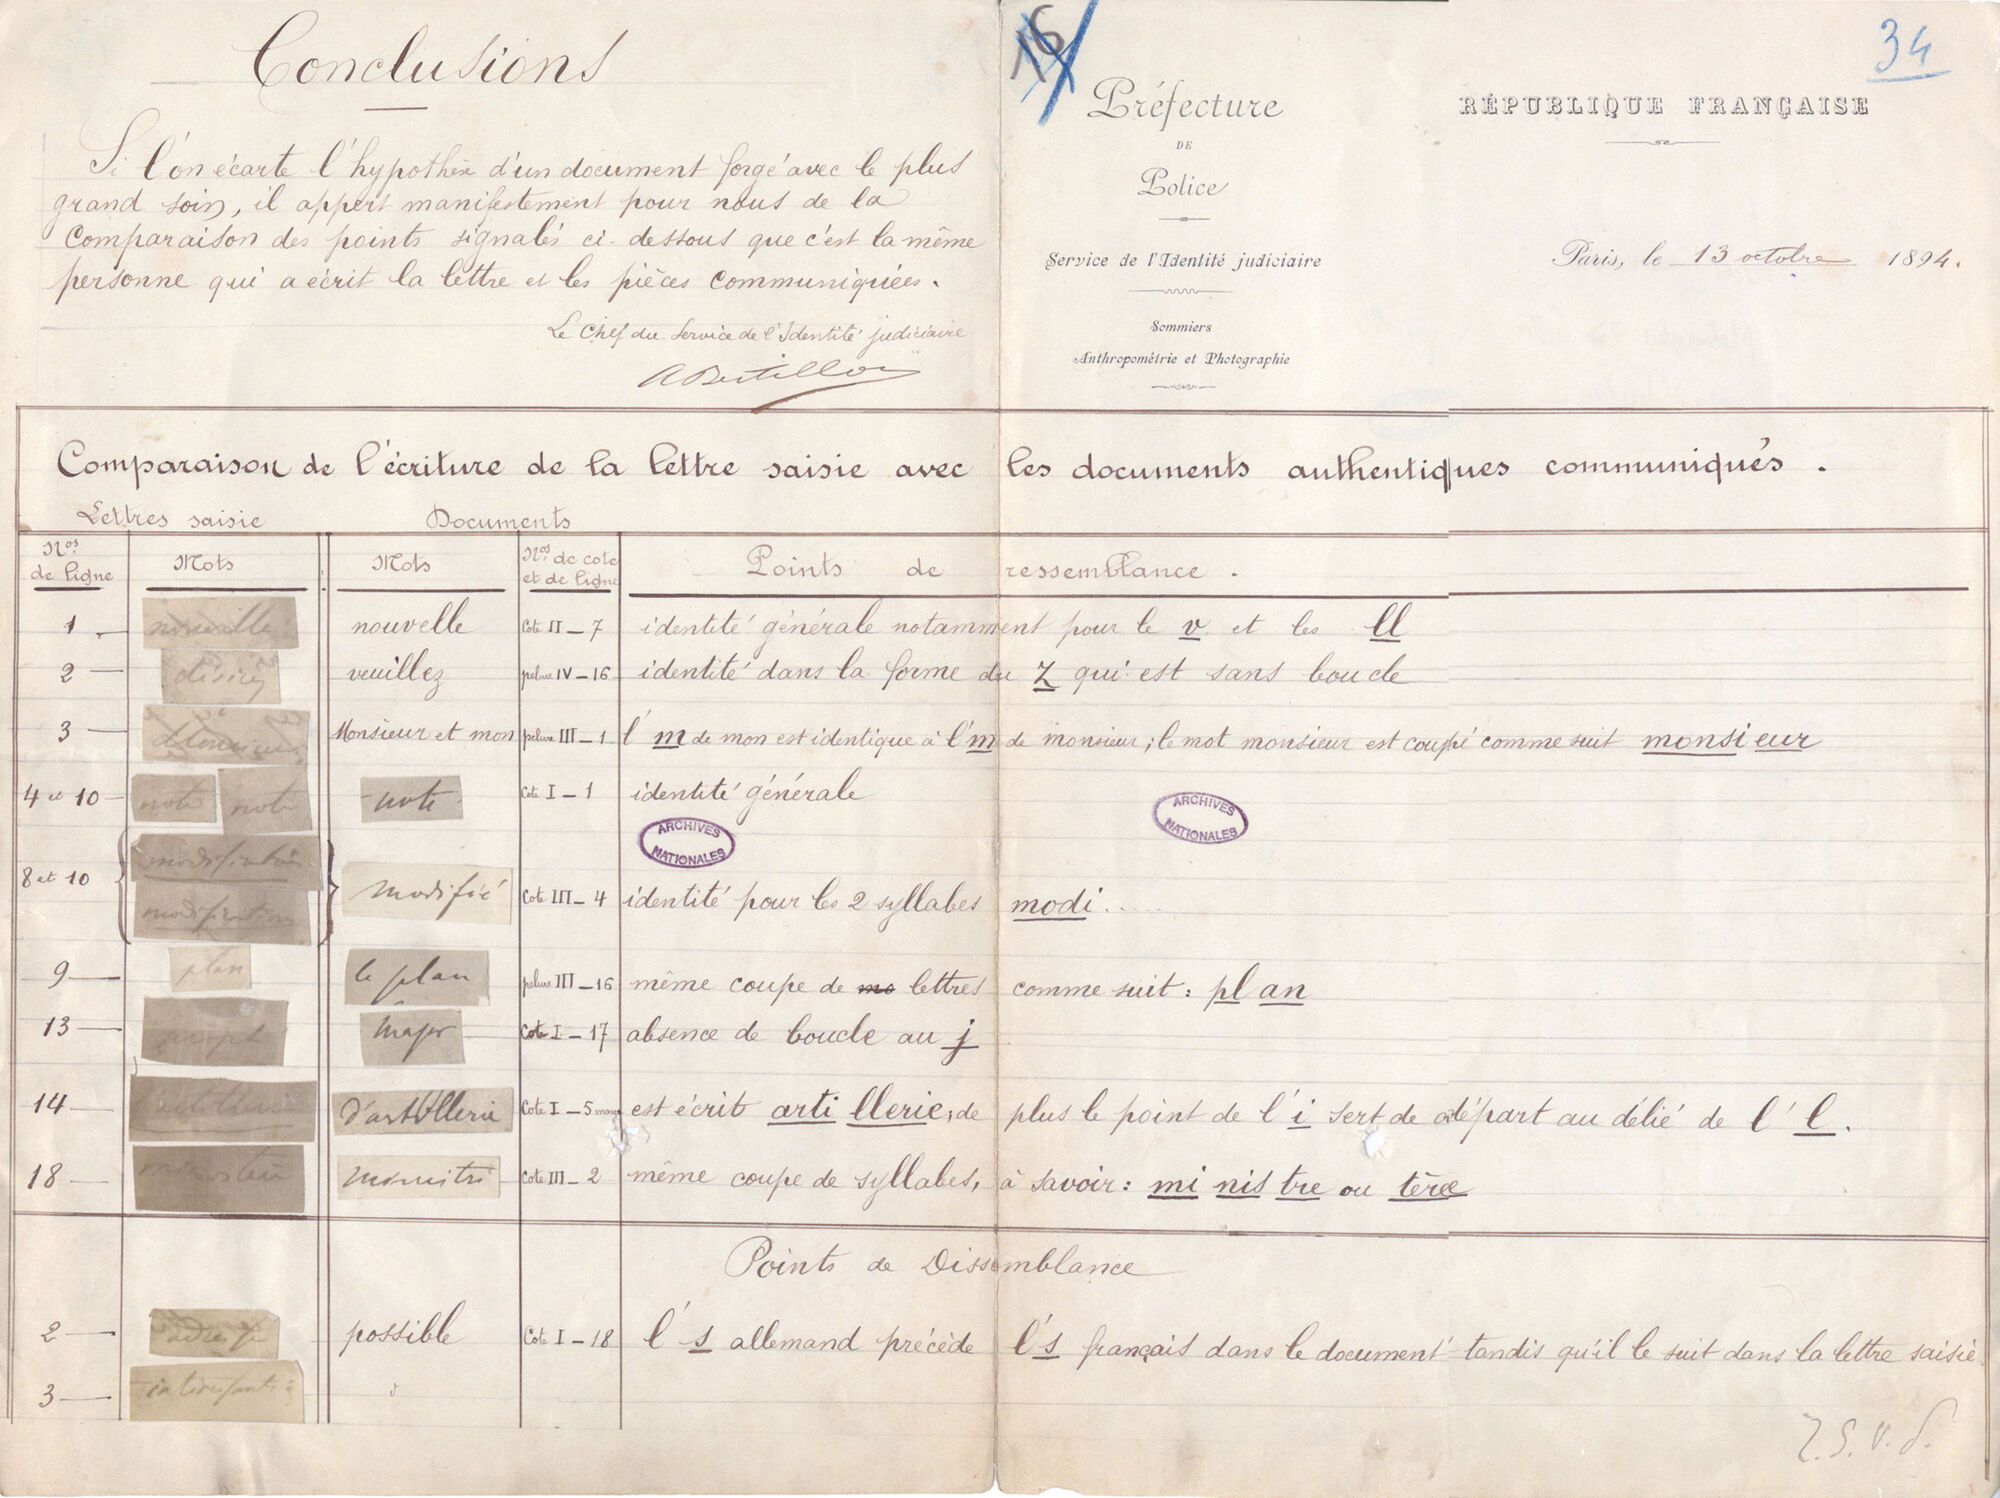 Conclusions
Si l'on écarte l'hypothèse d'un document forgé avec le plus
grand soin, il appert manifestement pour nous de la
comparaison des points signalés ci-dessous que c'est la même
personne qui a écrit la lettre et les pièces communiquées.
Le Chef du Service de l'Identité judiciaire
ABertillon
16
34
Préfecture
DE
Police
Service de l'Identité judiciaire
Sommiers
Anthropométrie et Photographie
RÉPUBLIQUE FRANÇAISE
Paris, le 13 octobre 1894.
Comparaison de l'écriture de la lettre saisie avec les documents authentiques communiqués.
Lettres saisie Documents
Nos de ligne Mots Mots Nos de cote et de ligne Points de ressemblance.
1 nouvelle nouvelle Cote II - 7 identité générale notamment pour le v et les ll
2 désirez veuillez pelure IV - 16 identité dans la forme du z qui est sans boucle
3 Monsieur et mon pelure III - 1 l'm de mon est identique à l'm de monsieur ; le mot monsieur est coupé comme suit monsi eur
4 et 10 note note note Cote I - 1 identité générale
ARCHIVES NATIONALES
ARCHIVES NATIONALES
8 et 10 modifications modification modifié Cote III - 4 identité pour les 2 syllabes modi.....
9 plan le plan pelure III - 16 même coupe de lettres comme suit : pl an
13 major Cote I - 17 absence de boucle au j
14 d'artillerie Cote I - 5 est écrit arti llerie, de plus le point de l'i sert de départ au délié de l'l.
18 ministre Cote III - 2 même coupe de syllabes, à savoir : mi nis tre ou tère
Points de Dissemblance
2 possible Cote I - 18 l's allemand précède l's français dans le document tandis qu'il le suit dans la lettre saisie
3
T.S.V.P.